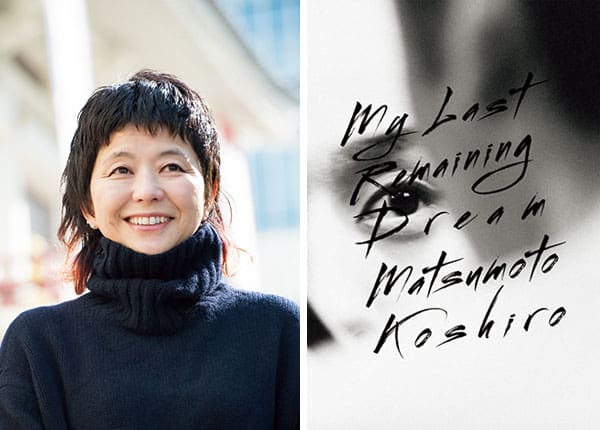 My Last
Remaining
Dream
Matsumoto
Koshiro